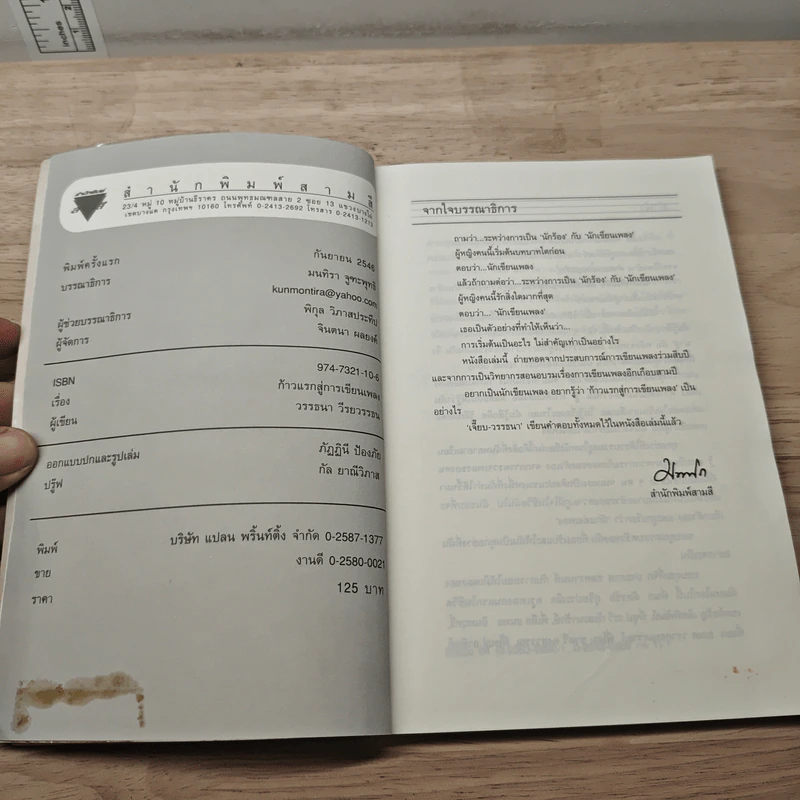 สำนักพิมพ์สามสี
23/4 หมู่ 10 หมู่บ้านธีราคร ถนนพุทธมณฑลสาย 2 ซอย 13 แขวงบางไผ่
เขตบางแค กรุงเทพฯ 10160 โทรศัพท์ 0-2413-2692 โทรสาร 0-2413-1215
พิมพ์ครั้งแรก กันยายน 2546
บรรณาธิการ มนทิรา จูฑะพุทธิ
kunmontira@yahoo.com
ผู้ช่วยบรรณาธิการ พิกุล วิภาสประทีป
ผู้จัดการ จินตนา ผลยงค์
ISBN 974-7321-10-6
เรื่อง ก้าวแรกสู่การเขียนเพลง
ผู้เขียน วรรธนา วีรยวรรธน
ออกแบบปกและรูปเล่ม ภัฏฏินี ป้องภัย
ปรู๊ฟ กัล ยาณีวิภาส
พิมพ์ บริษัท แปลน พริ้นท์ติ้ง จำกัด 0-2587-1377
ขาย งานดี 0-2580-0021
ราคา 125 บาท
จากใจบรรณาธิการ
ถามว่า...ระหว่างการเป็น 'นักร้อง' กับ 'นักเขียนเพลง'
ผู้หญิงคนนี้เริ่มต้นบทบาทใดก่อน
ตอบว่า...นักเขียนเพลง
แล้วถ้าถามต่อว่า...ระหว่างการเป็น 'นักร้อง' กับ 'นักเขียนเพลง'
ผู้หญิงคนนี้รักสิ่งใดมากที่สุด
ตอบว่า... 'นักเขียนเพลง'
เธอเป็นตัวอย่างที่ทำให้เห็นว่า...
การเริ่มต้นเป็นอะไร ไม่สำคัญเท่าเป็นอย่างไร
หนังสือเล่มนี้ ถ่ายทอดจากประสบการณ์การเขียนเพลงร่วมสิบปี
และจากการเป็นวิทยากรสอนอบรมเรื่องการเขียนเพลงอีกเกือบสามปี
อยากเป็นนักเขียนเพลง อยากรู้ว่า 'ก้าวแรกสู่การเขียนเพลง' เป็น
อย่างไร
'เจี๊ยบ-วรรธนา' เขียนคำตอบทั้งหมดไว้ในหนังสือเล่มนี้แล้ว
สำนักพิมพ์สามสี